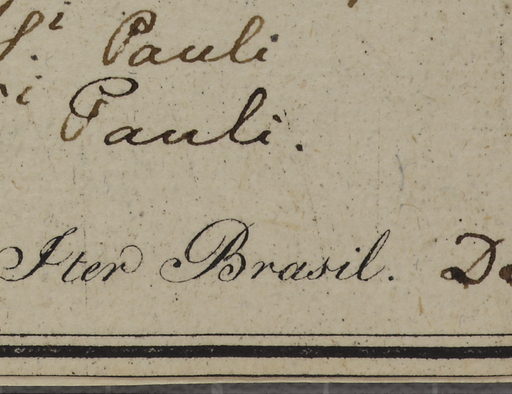 Sⁱ. Pauli
i Pauli.
Iter Brasil. D